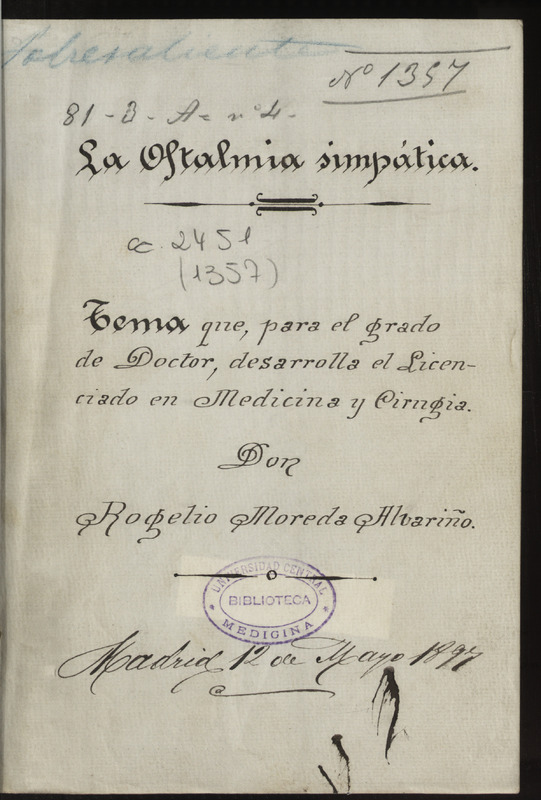 Sobresaliente
Nº 1357
81-3-A= nº 4-
La Oftalmia simpática.
cc. 2451
(1357)
Tema que, para el grado
de Doctor, desarrolla el Licen-
ciado en Medicina y Cirugia.
Don
Rogelio Moreda Alvariño.
UNIVERSIDAD CENTRAL
BIBLIOTECA
MEDICINA
Madrid 12 de Mayo 1897